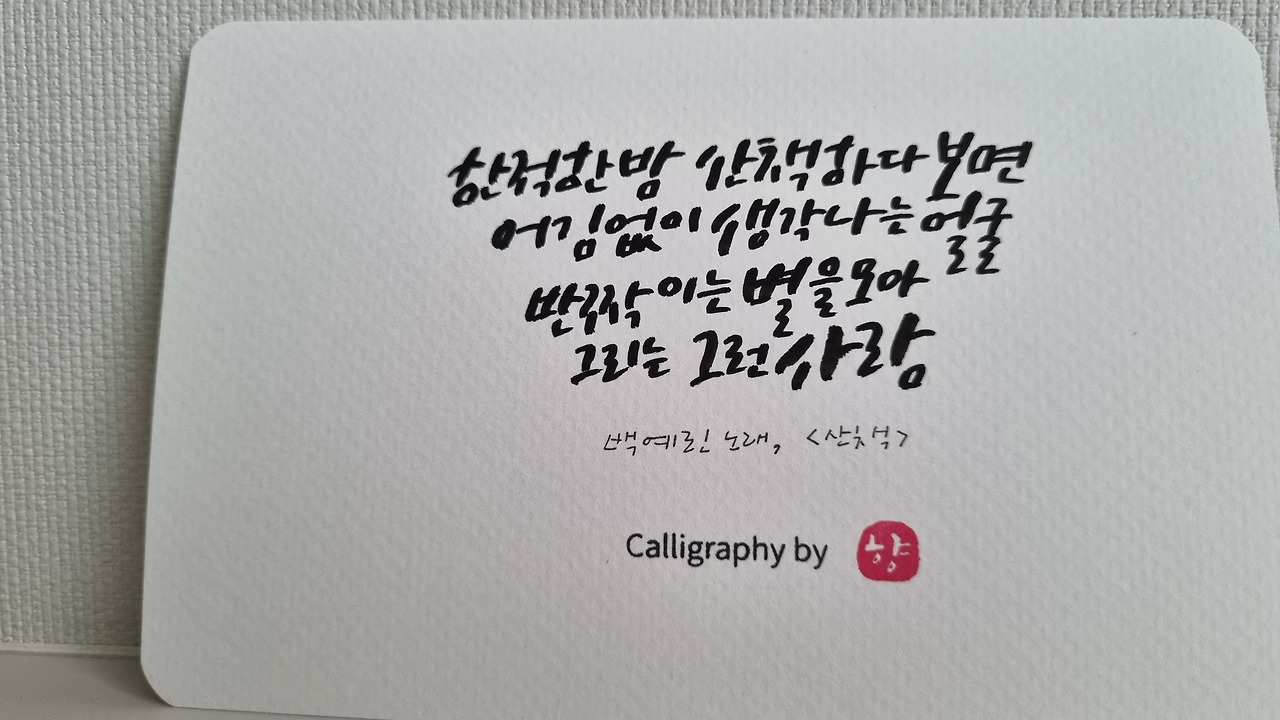 한적한 밤 산책하다 보면
어김없이 생각나는 얼굴
반짝이는 별을 모아
그리는 그런 사람
백예린 노래, <산책>
Calligraphy by 향